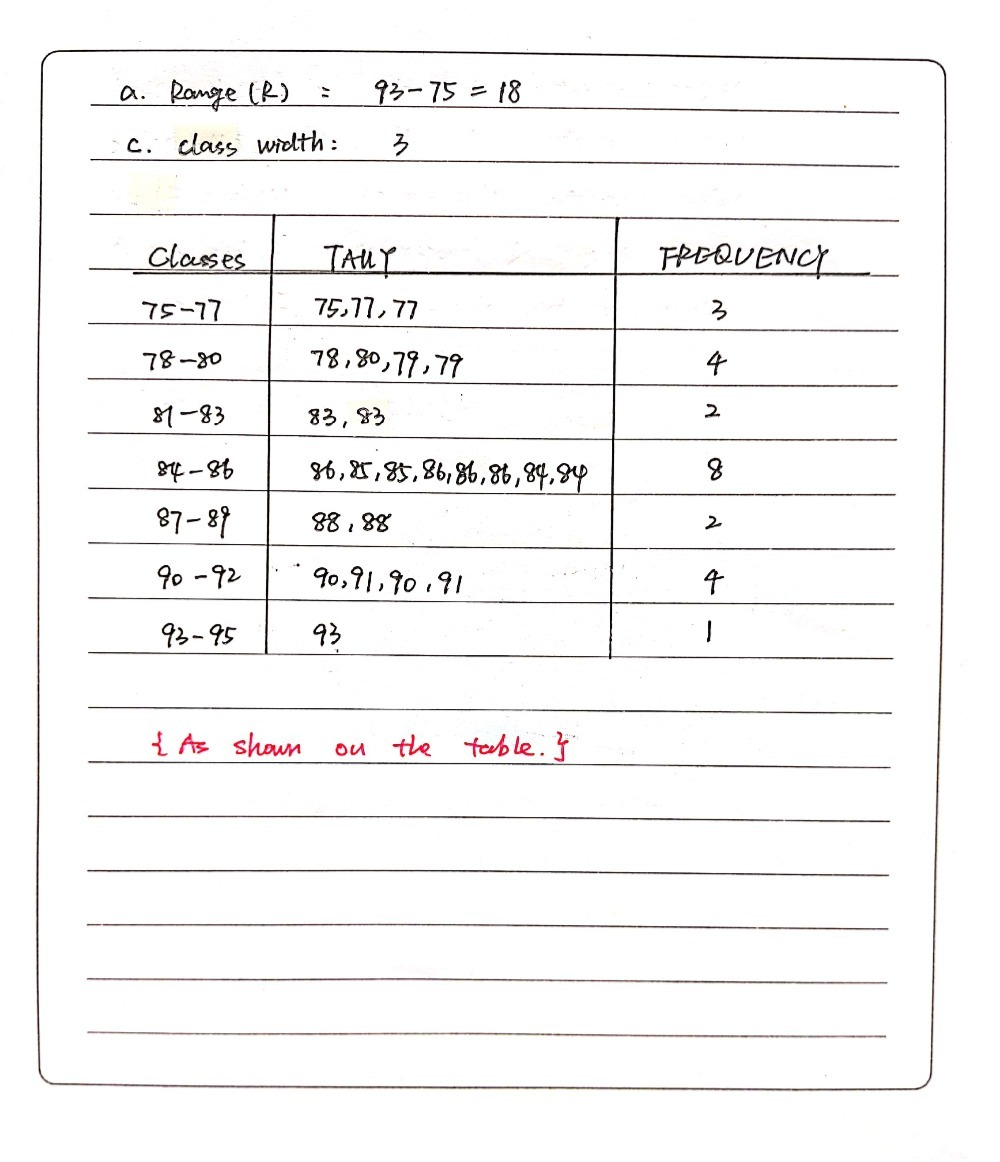 a. Range (R) : 93-75 = 18
c. class width: 3
Classes TALLY FREQUENCY
75-77 75,77,77 3
78-80 78,80,79,79 4
81-83 83,83 2
84-86 86,85,85,86,86,86,84,84 8
87-89 88,88 2
90-92 90,91,90,91 4
93-95 93 1
{ As shown on the table. }